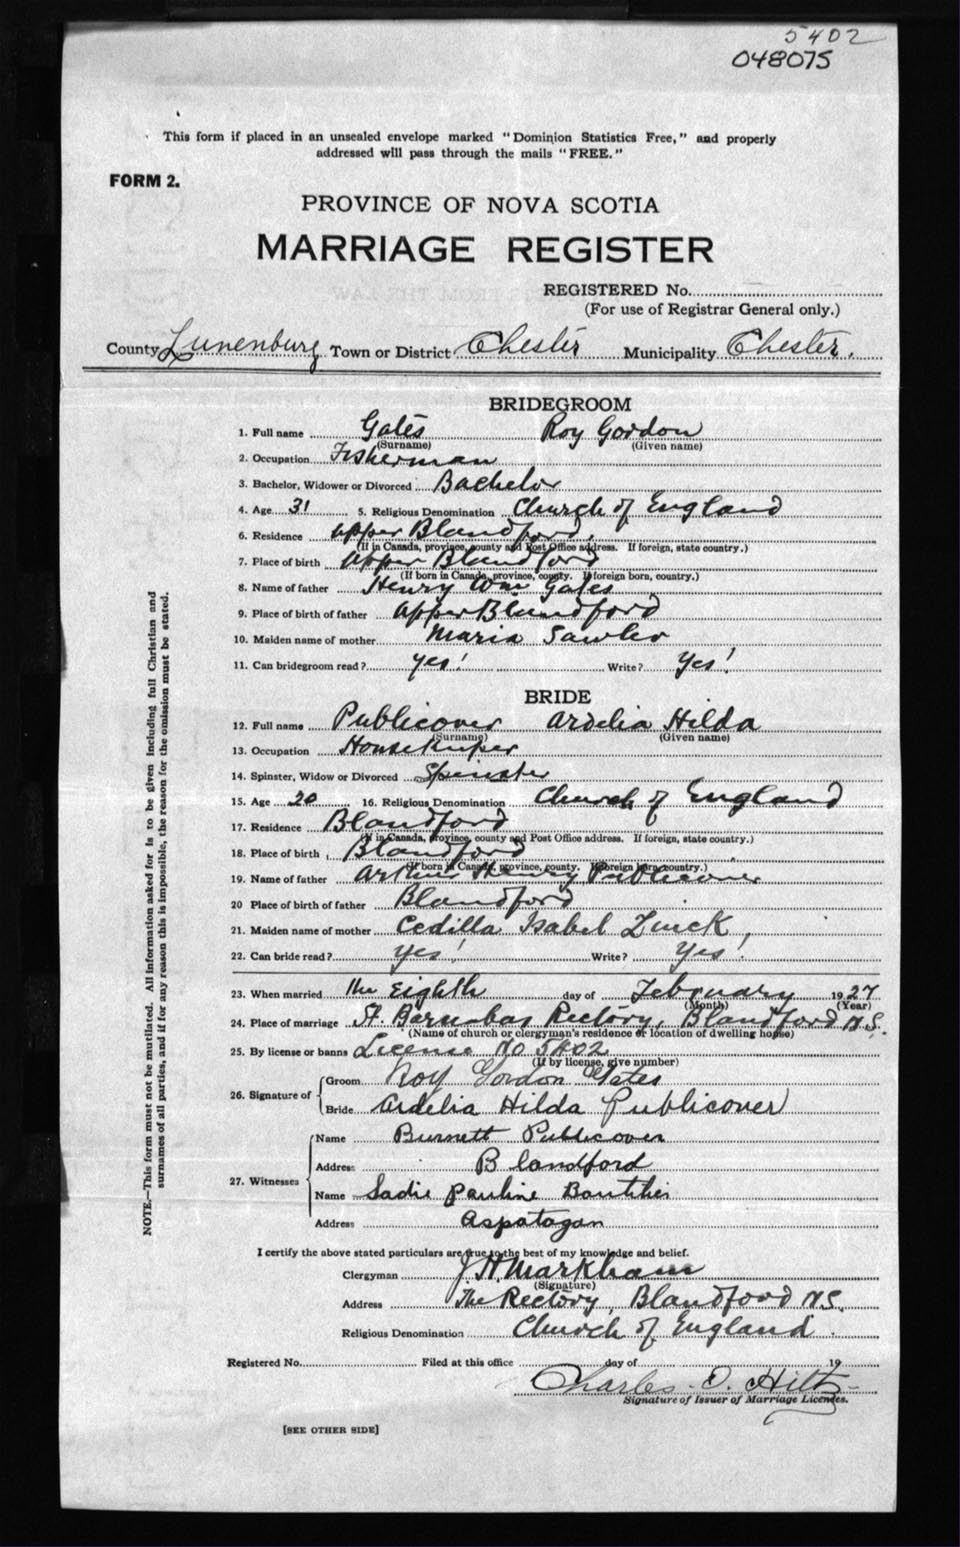 5402
048075
This form if placed in an unsealed envelope marked "Dominion Statistics Free," and properly
addressed will pass through the mails "FREE."
FORM 2.
PROVINCE OF NOVA SCOTIA
MARRIAGE REGISTER
REGISTERED No.
(For use of Registrar General only.)
County Lunenburg Town or District Chester Municipality Chester.
BRIDEGROOM
1. Full name Gates Roy Gordon
(Surname) (Given name)
2. Occupation Fisherman
3. Bachelor, Widower or Divorced Bachelor
4. Age 31 5. Religious Denomination Church of England
6. Residence Upper Blandford,
(If in Canada, province, county and Post Office address. If foreign, state country.)
7. Place of birth Upper Blandford
(If born in Canada, province, county. If foreign born, country.)
8. Name of father Henry Wm Gates
9. Place of birth of father Upper Blandford
10. Maiden name of mother Maria Sawler
11. Can bridegroom read? yes! Write? Yes!
BRIDE
12. Full name Publicover Ardelia Hilda
(Surname) (Given name)
13. Occupation Housekeeper
14. Spinster, Widow or Divorced Spinster
15. Age 20 16. Religious Denomination Church of England
17. Residence Blandford
(If in Canada, province, county and Post Office address. If foreign, state country.)
18. Place of birth Blandford
(If born in Canada, province, county. If foreign born, country.)
19. Name of father Arthur Henry Publicover
20 Place of birth of father Blandford
21. Maiden name of mother Cedilla Isabel Zinck,
22. Can bride read? Yes! Write? Yes!
23. When married the Eighth day of February 1927
(Month) (Year)
24. Place of marriage St. Barnabas Rectory, Blandford N.S.
(Name of church or clergyman's residence or location of dwelling house)
25. By license or banns License No 5402
(If by license, give number)
26. Signature of Groom Roy Gordon Gates
Bride Ardelia Hilda Publicover
27. Witnesses Name Burnett Publicover
Address Blandford
Name Sadie Pauline Boutilier
Address Aspotogan
I certify the above stated particulars are true to the best of my knowledge and belief.
Clergyman J. H. Markham
(Signature)
Address The Rectory, Blandford N.S.
Religious Denomination Church of England.
Registered No. Filed at this office day of 19
Charles O. Hiltz
Signature of Issuer of Marriage Licenses.
[SEE OTHER SIDE]
NOTE.—This form must not be mutilated. All information asked for is to be given including full Christian and
surnames of all parties, and if for any reason this is impossible, the reason for the omission must be stated.